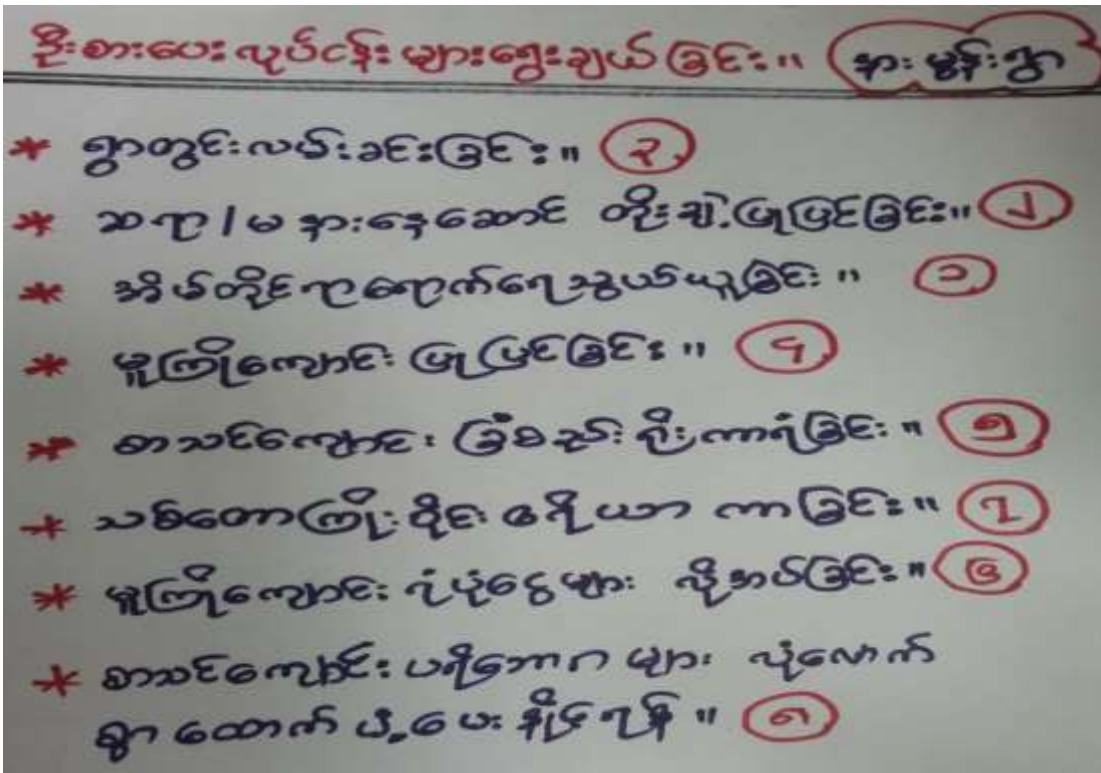 ဦးစားပေး လုပ်ငန်း များရွေးချယ် ခြင်း။ နားမွန်းရွာ
* ရွာတွင်းလမ်းခင်းခြင်း။ ၃
* ဆရာ/မ နားနေဆောင် တိုးချဲ့ ပြုပြင်ခြင်း။ ၂
* အိမ်တိုင်ရာရောက်ရေသွယ်ယူခြင်း။ ၁
* မူကြိုကျောင်း ပြုပြင်ခြင်း။ ၄
* စာသင်ကျောင်း ခြံစည်းရိုးကာရံခြင်း။ ၅
* သစ်တောကြိုးဝိုင်း ဧရိယာ ကာခြင်း။ ၇
* မူကြိုကျောင်း ရံပုံငွေများ လိုအပ်ခြင်း။ ၆
* စာသင်ကျောင်း ပရိဘောဂ များ လုံလောက်
စွာ ထောက်ပံ့ပေးနိုင်ရန်။ ၈